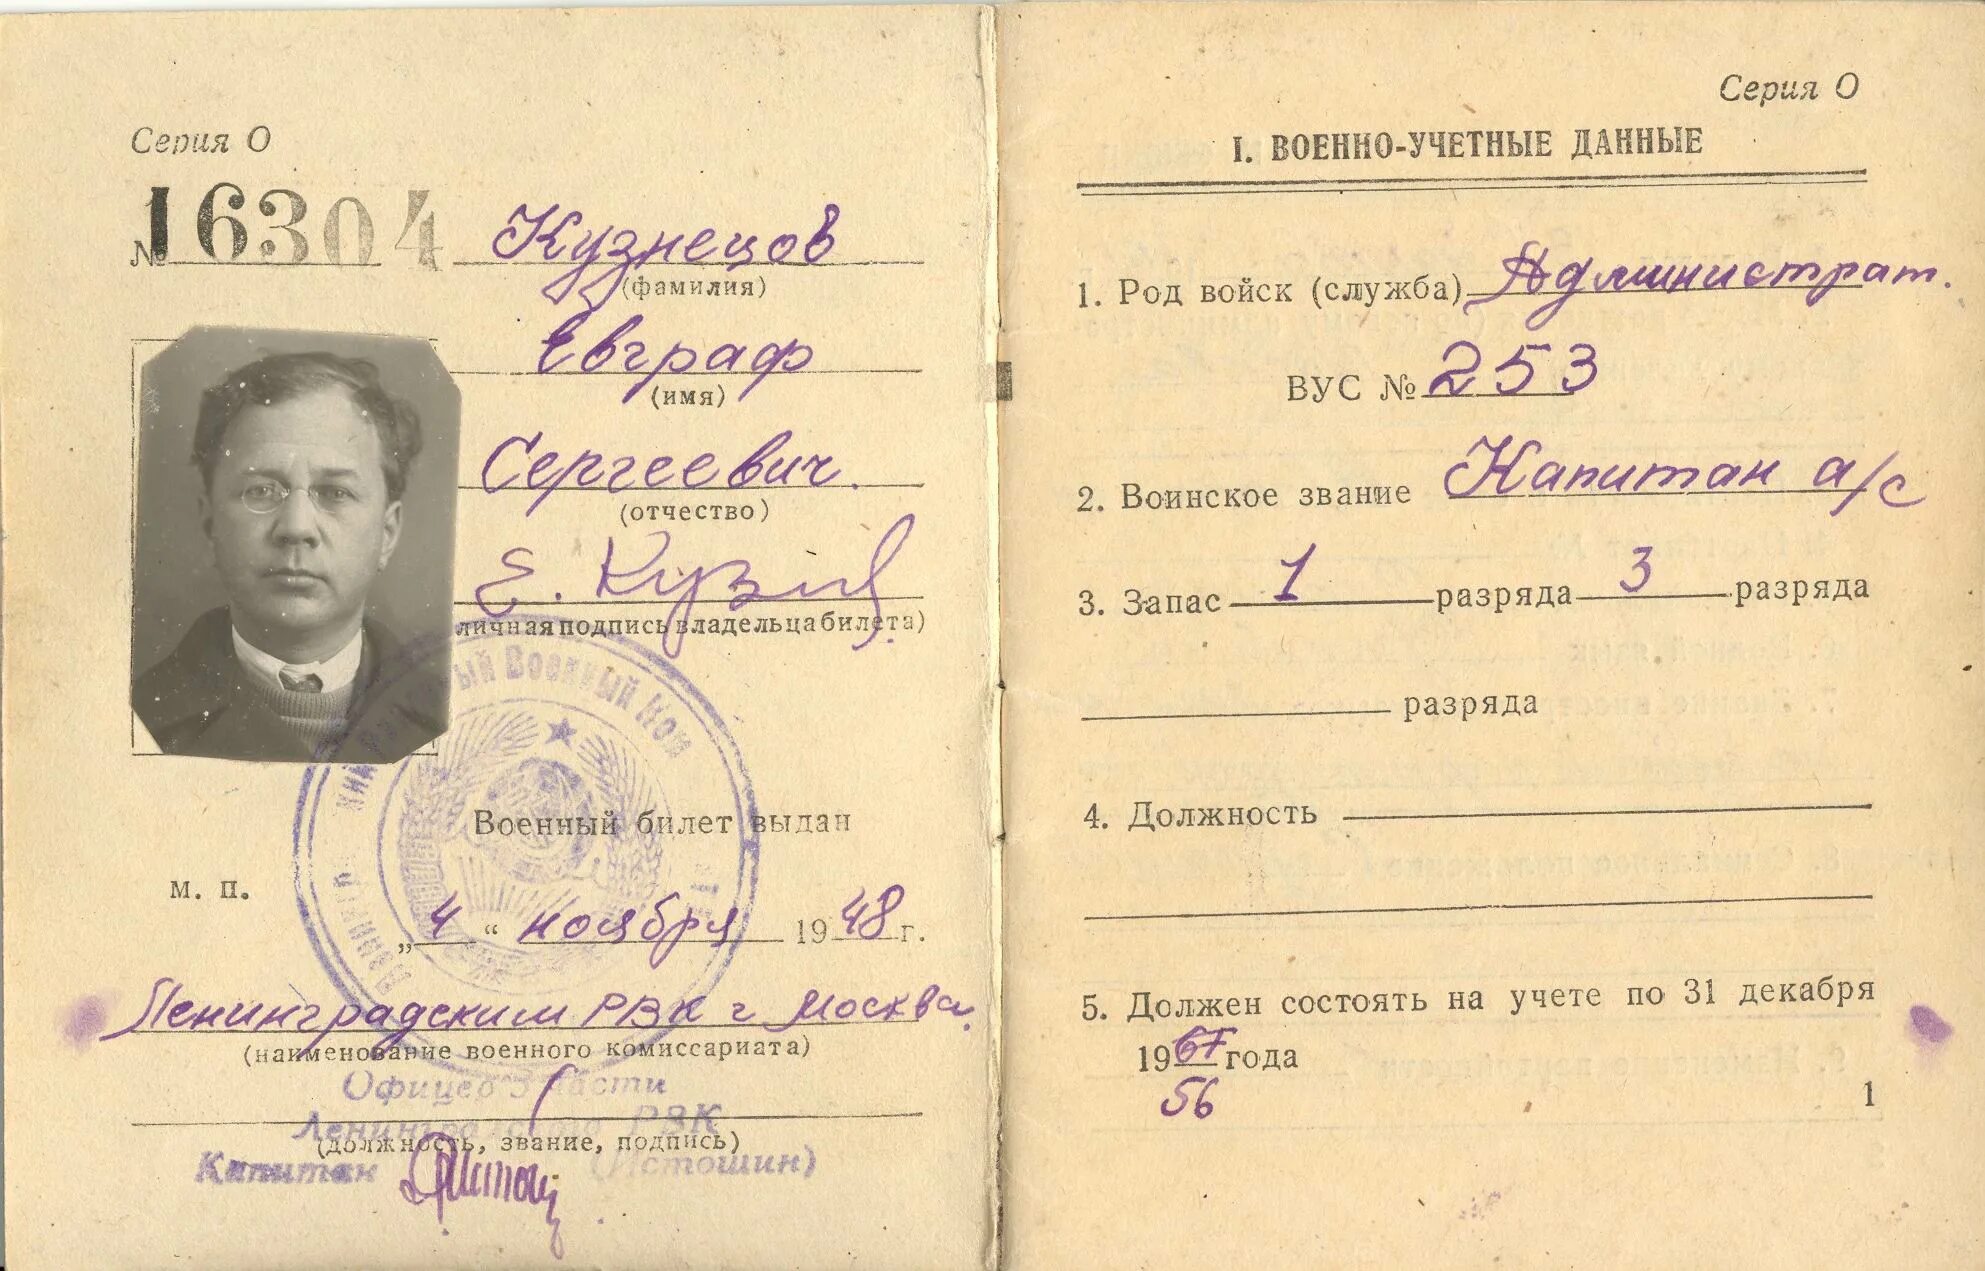 Серия О
№ 16304
Кузнецов
(фамилия)
Евграф
(имя)
Сергеевич.
(отчество)
Е. Кузн
личная подпись владельца билета)
ый Военный Ком
Военный билет выдан
м. п.
„4“ ноября 1948 г.
Ленинградским РВК г Москва.
(наименование военного комиссариата)
Офицер части
РВК
(должность, звание, подпись)
Капитан (Истошин)
Серия О
I. ВОЕННО-УЧЕТНЫЕ ДАННЫЕ
1. Род войск (служба) Администрат.
ВУС № 253
2. Воинское звание Капитан а/с
3. Запас 1 разряда 3 разряда
разряда
4. Должность
5. Должен состоять на учете по 31 декабря
1967 года
56
1